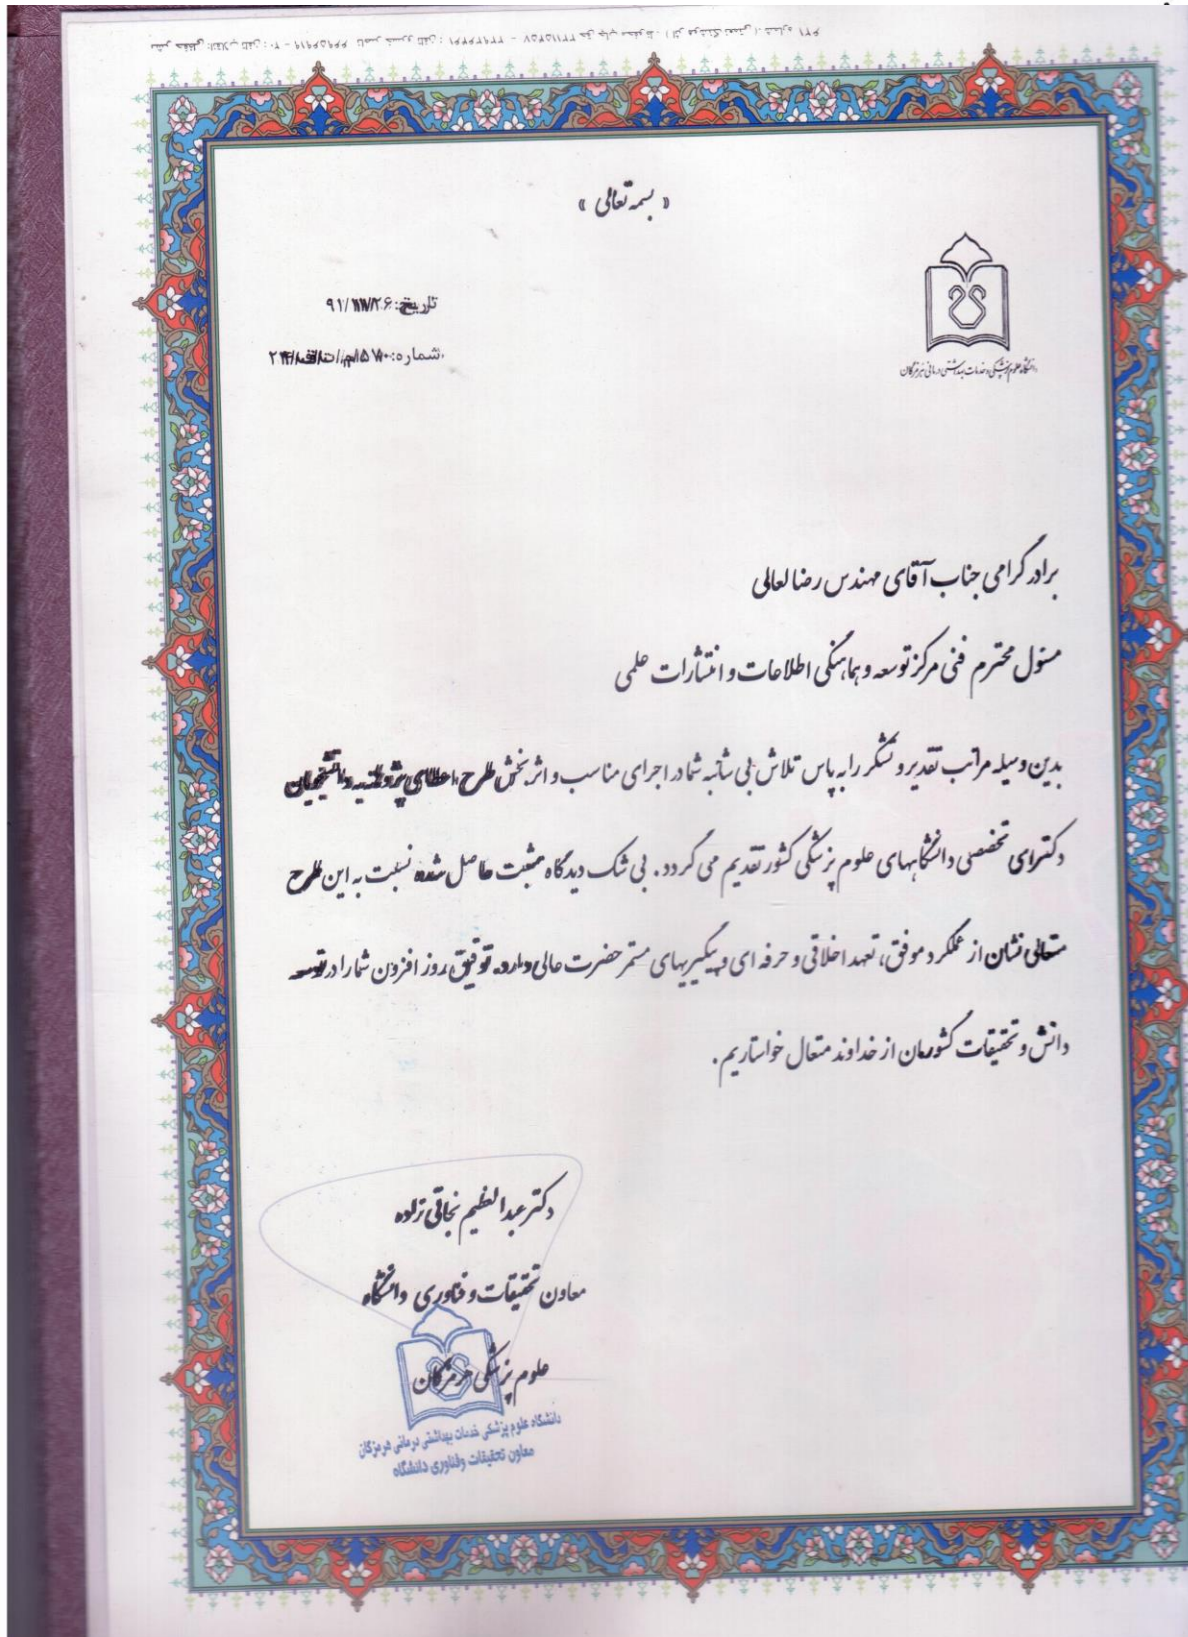 « بسمه تعالی »
تاریخ: ۹۱/
شماره:
دانشگاه علوم پزشکی و خدمات بهداشتی درمانی هرمزگان
برادر گرامی جناب آقای مهندس رضا لعالی
مسئول محترم فنی مرکز توسعه و هماهنگی اطلاعات و انتشارات علمی
بدین وسیله مراتب تقدیر و تشکر را به پاس تلاش بی شائبه شما در اجرای مناسب و اثر بخش طرح اعطای پژوهانه دانشجویان
دکترای تخصصی دانشگاههای علوم پزشکی کشور تقدیم می گردد. بی شک دیدگاه مثبت حاصل شده نسبت به این طرح
متعالی نشان از عملکرد موفق، تعهد اخلاقی و حرفه ای و پیگیریهای مستمر حضرت عالی دارد. توفیق روز افزون شما را در توسعه
دانش و تحقیقات کشورمان از خداوند متعال خواستاریم.
دکتر عبدالعظیم نجاتی زاده
معاون تحقیقات و فناوری دانشگاه
علوم پزشکی هرمزگان
دانشگاه علوم پزشکی خدمات بهداشتی درمانی هرمزگان
معاون تحقیقات وفناوری دانشگاه